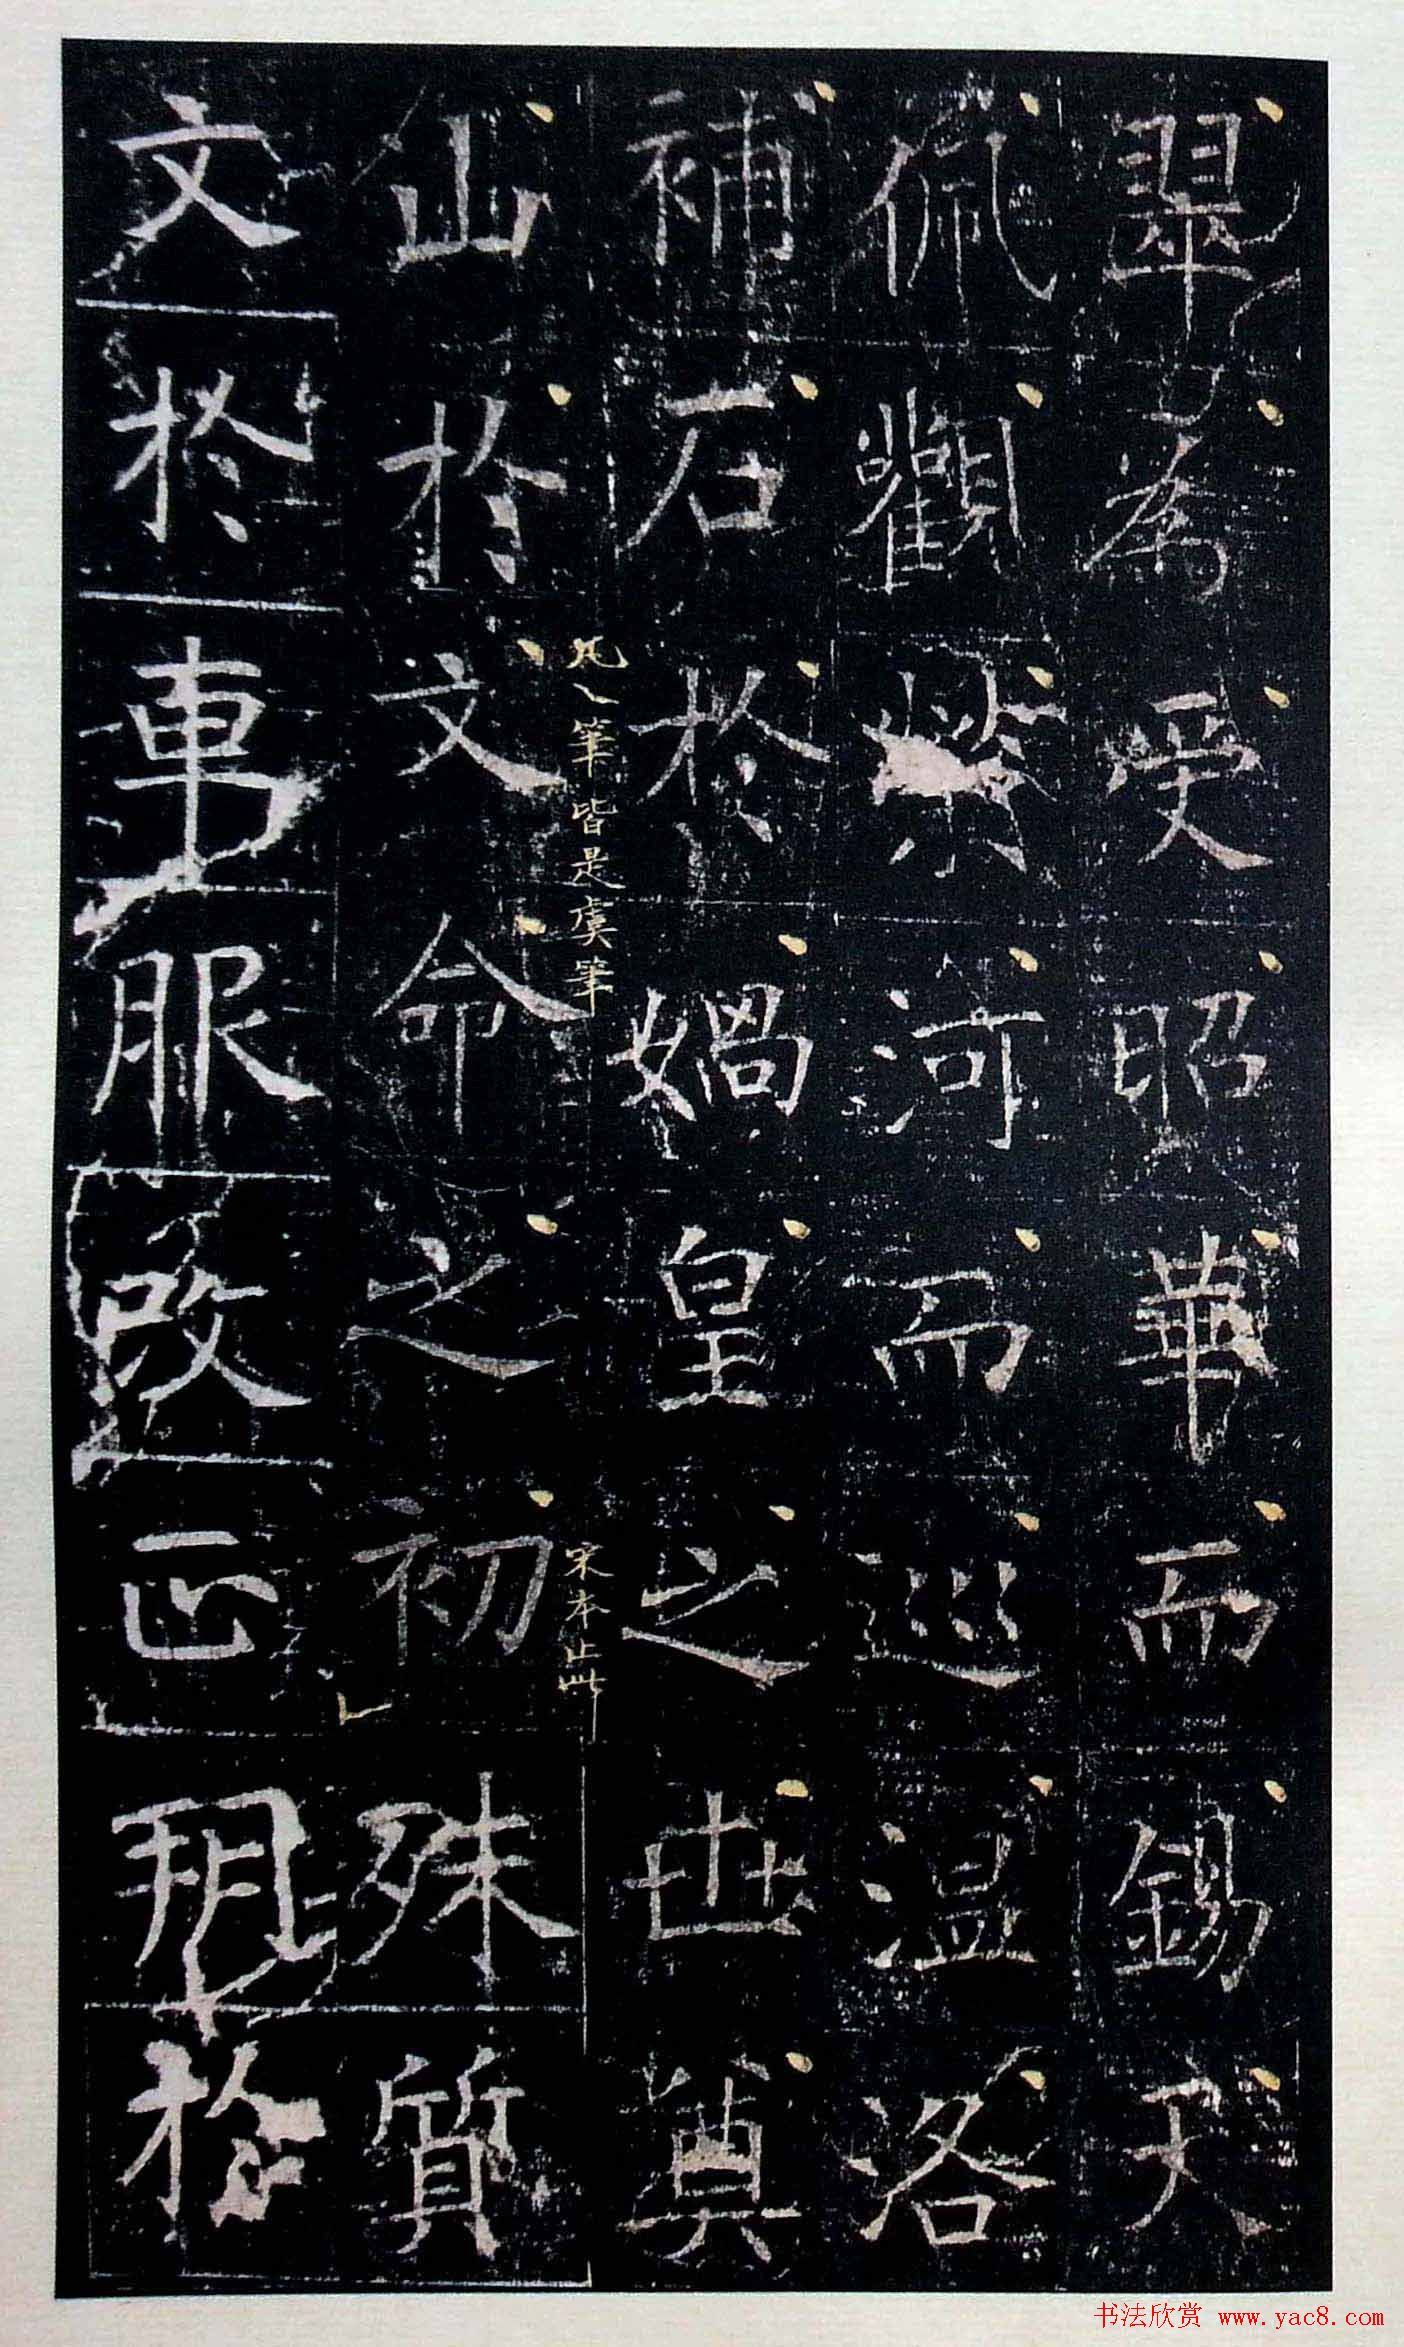 翠為受昭華而錫天
佩觀榮河而巡温洛
補石於媧皇之世奠
凡丶筆皆是虞筆
宋本止此
山於文命之初殊質
文於車服改正朔於
书法欣赏 www.yac8.com